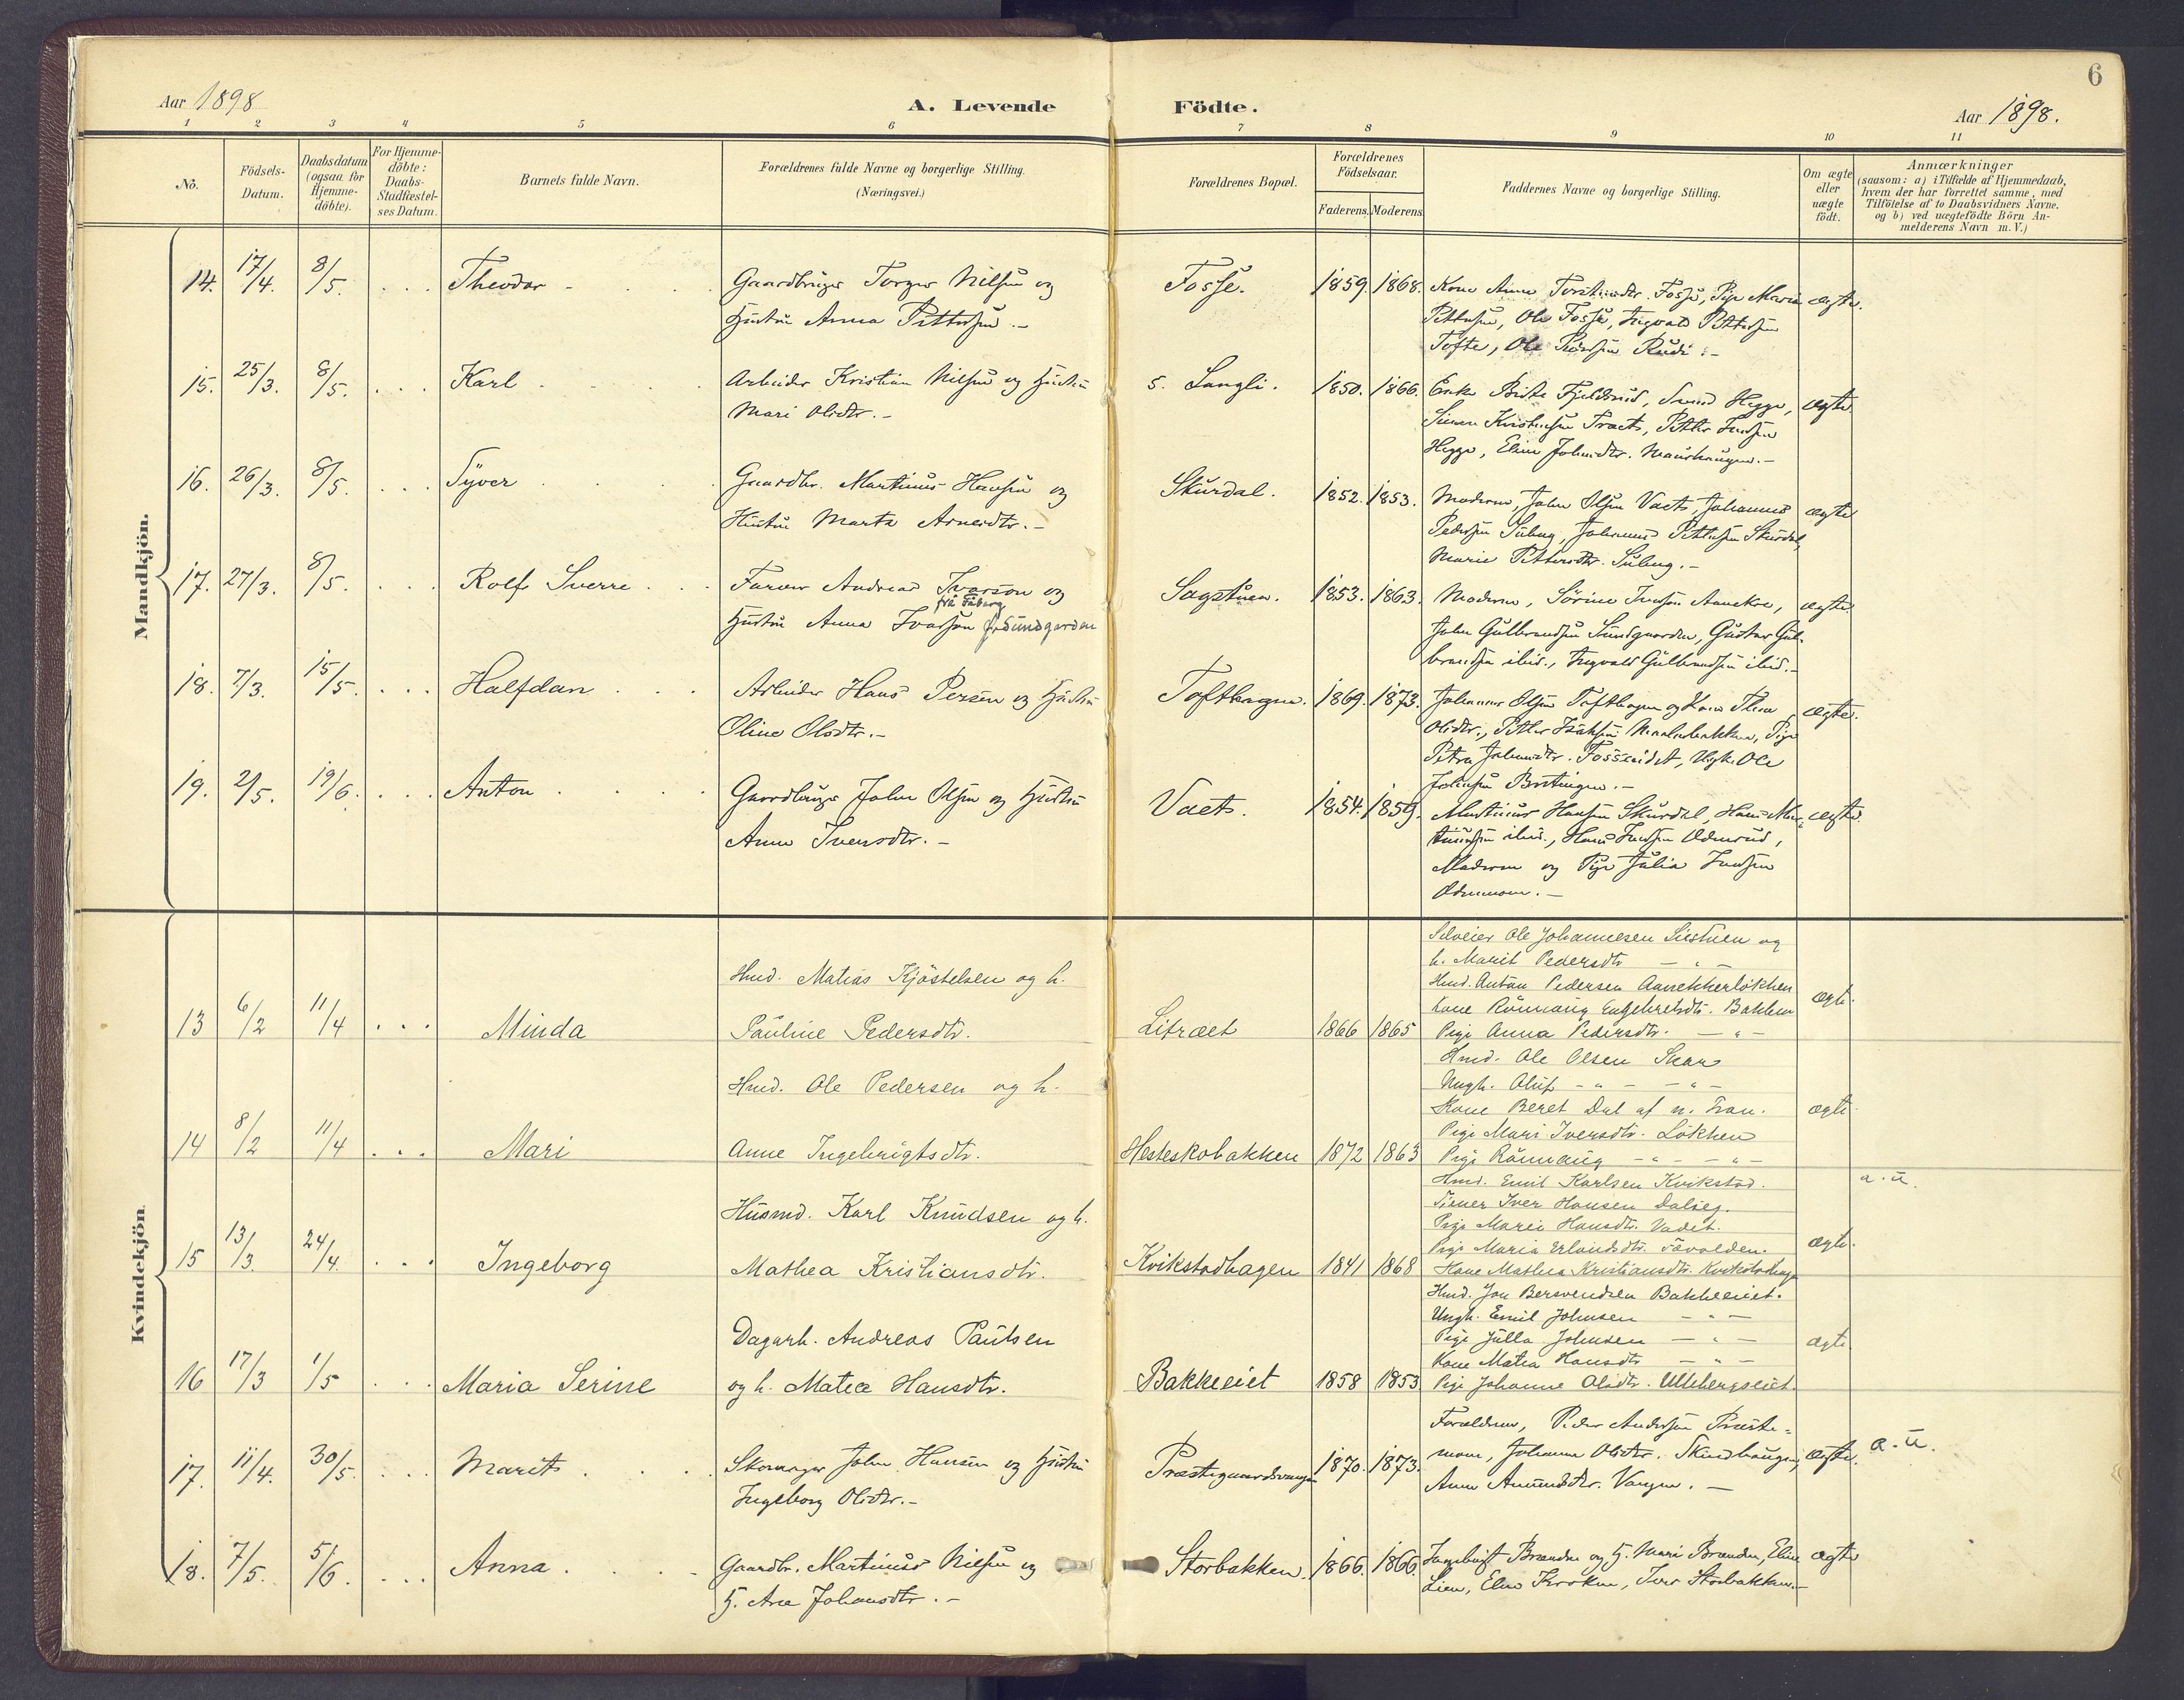 6
Aar 1898
A. Levende Födte.
Aar 1898.
1 2 3 4 5 6 7 8 9 10 11
No.
Födsels-
Datum.
Daabsdatum
(ogsaa for
Hjemme-
döbte).
For Hjemme-
döbte:
Daabs-
Stadfæstel-
ses Datum.
Barnets fulde Navn.
Forældrenes fulde Navne og borgerlige Stilling.
(Næringsvei.)
Forældrenes Bopæl.
Forældrenes
Födselsaar.
Faderens. Moderens.
Faddernes Navne og borgerlige Stilling.
Om ægte
eller
uægte
födt.
Anmærkninger
(saasom: a) i Tilfælde af Hjemmedaab,
hvem der har forrettet samme, med
Tilföielse af to Daabsvidners Navne,
og b) ved uægtefödte Börn An-
melderens Navn m. V.)
Mandkjön.
14. 17/4. 8/5. . . . Theodor Gaardbruger Torger Nilsen og Fosse. 1859. 1868. Kone Anne Fosse, Pige Maria ægte.
Hustru Anna Pettersen. Pettersen, Ole Fosse, Ingvald Pettersen
Tofte, Ole Pedersen Rudi.
15. 25/3. 8/5. . . . Karl Arbeider Kristian Nilsen og Hustru s. Langli. 1850. 1866. Enke Fjeldrud, Svend Hegge, ægte
Mari Olsdtr. Simen Kristensen Traet, Petter Jensen
Hegge, Eline Johnsdtr. Maurhaugen.
16. 26/3. 8/5. . . . Syver Gaardbr. Martinus Hansen og Skurdal. 1852. 1853. Moderen, John Olsen Vaet, Johannes ægte
Hustru Marta Arnesdtr. Pedersen Suleng, Johannes Pettersen Skurdal,
Marie Pettersdtr. Suleng.
17. 27/3. 8/5. . . . Rolf Sverre Farver Andreas Ivarson og Sagstuen. 1853. 1863. Moderen, Sörine Jensen Aanekre, ægte
frå Fåberg
Hustru Anna Ivarson f. Sundgarden John Gulbrandsen Sundgaarden, Gustav Gul-
brandsen ibid., Ingvald Gulbrandsen ibid.
18. 7/3. 15/5. . . . Halfdan Arbeider Hans Persen og Hustru Tofthagen. 1869. 1873. Johannes Olsen Tofthagen og Kone Thea ægte.
Oline Olsdtr. Olsdtr., Petter Isaksen, Pige
Petra Johansdtr. Fosseidet, Ungk. Ole
Johnsen Brutingen.
19. 2/5. 19/6. . . . Anton Gaardbruger John Olsen og Hustru Vaet. 1854. 1859. Martinus Hansen Skurdal, Hans Mar- ægte.
Anne Iversdtr. tinussen ibid., Hans Jensen Odnerud,
Moderen og Pige Julia Jensen
Kvindekjön.
Selveier Ole Johannesen Liestuen og
Husmd. Matias Kjöstelsen og h. h. Marit Pedersdtr — " —
Husmd. Anton Pedersen Aanekkerlökken ægte.
Kone Rönnaug Engebretsdtr. Bakken
13 6/2 11/4 . . . Minda Pauline Pedersdtr. Litraet 1866 1865 Pige Anna Pedersdtr. — " —
Husmd. Ole Olsen Skar
Husmd. Ole Pedersen og h. Ungk. Oluf — " — — " —
Kone Beret Dal af n. Fron. ægte
Pige Mari Iversdtr. Lökken
14 8/2 11/4 . . . Mari Anne Ingebrigtsdtr. Hesteskobakken 1872 1863 Pige Rönnaug — " — — " —
Husmd. Emil Karlsen Kvikstad. a. u.
Husmd. Karl Knudsen og h. Tiener Iver Hansen Dalseg.
Pige Marie Hansdtr. Vadet.
Pige Maria Erlandsdtr. ægte.
15 13/3. 24/4. . . . Ingeborg Mathea Kristiansdtr. Kvikstadhagen 1841 1868 Kone Mathea Kristiansdtr. Kvikstadhagen
Husmd. Jon Bersvendsen Bakkeeiet.
Dagarb. Andreas Paulsen Ungk. Emil Johnsen — " —
Pige Julla Johnsen — " — ægte
Kone Matea Hansdtr — " —
16 17/3 1/5 . . . Maria Serine og h. Matea Hansdtr. Bakkeeiet 1858 1853 Pige Johanne Olsdtr. Ullebergseiet.
Forældrene, Peder Andersen Præste-
17. 11/4. 30/5. . . . Marit Skomager John Hansen og Hustru Præstegaardsvangen 1870. 1873. moen, Johanne Olsdtr. Skindhaugen, ægte. a. u.
Ingeborg Olsdtr. Anne Amundsdtr. Vangen.
18. 7/5. 5/6. . . . Anna Gaardbr. Martinus Nilsen og Storbakken. 1866. 1866. Ingebrigt Brænden og H. Mari Brænden, Eline ægte
H. Ane Johansdtr. Lien, Iver Storbakken.